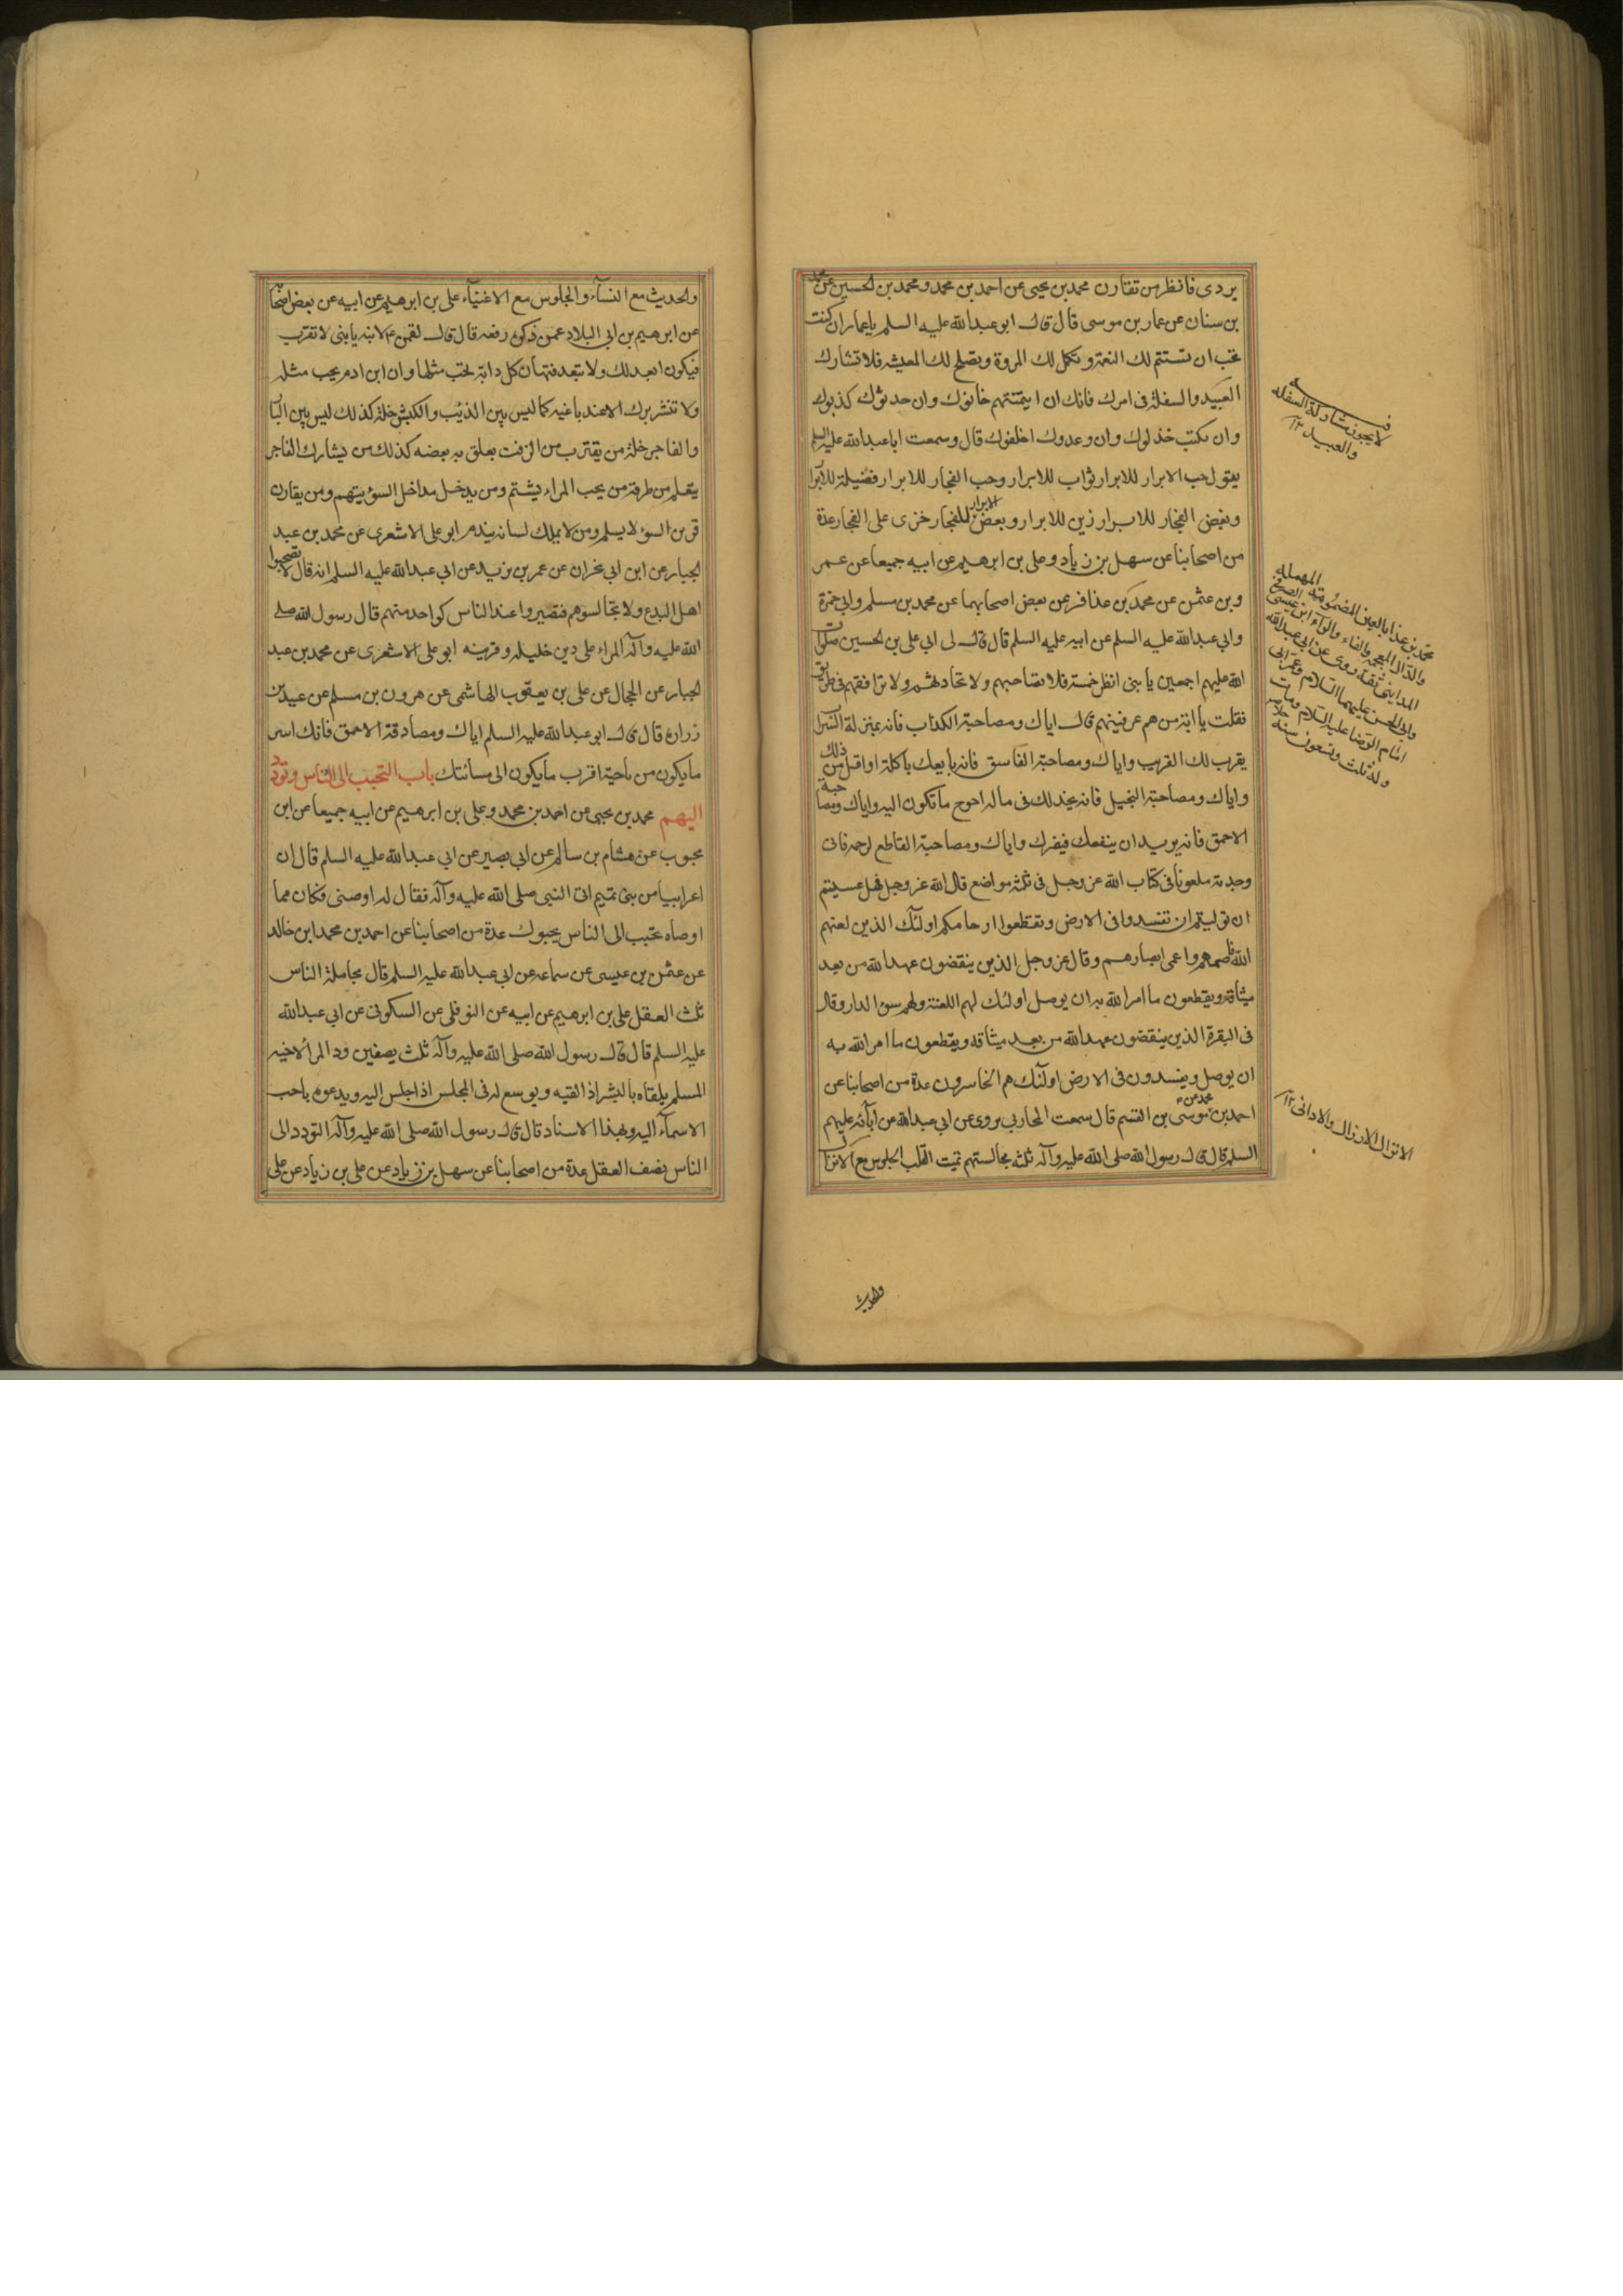 يردى فانظر من تقارن محمد بن يحيى عن احمد بن محمد ومحمد بن الحسين عن محمد
بن سنان عن عمار بن موسى قال قال ابو عبدالله عليه السلم يا عمار ان كنت
تحب ان تستتم لك النعمة وتكمل لك المروة وتصلح لك المعيشه فلا تشارك
العبيد والسفلة فى امرك فانك ان ايتمنتهم خانوك وان حدثوك كذبوك
وان نكبت خذلوك وان وعدوك اخلفوك قال وسمعت ابا عبدالله عليه السلم
يقول حب الابرار للابرار ثواب للابرار وحب الفجار للابرار فضيلة للابرا
وبغض الفجار للابرار زين للابرار وبغض الابرار للفجار خزى على الفجار عدة
من اصحابنا عن سهل بن زياد وعلى بن ابرهيم عن ابيه جميعا عن عمر
وبن عثمن عن محمد بن عذافر عن بعض اصحابهما عن محمد بن مسلم وابى حمزة
وابى عبدالله عليه السلم عن ابيه عليه السلم قال قال لى ابى على بن الحسين صلوات
الله عليهم اجمعين يا بنى انظر خمسة فلا تصاحبهم ولا تحادثهم ولا ترافقهم فى طريق
فقلت يا ابة من هم عرفنيهم قال اياك ومصاحبة الكذاب فانه بمنزلة السراب
يقرب لك القريب واياك ومصاحبة الفاسق فانه بايعك باكلة او اقل من ذلك
واياك ومصاحبة البخيل فانه يخذلك فى ماله احوج ما تكون اليه واياك ومصاحبة
الاحمق فانه يريد ان ينفعك فيضرك واياك ومصاحبة القاطع لرحمه فانى
وجدته ملعونا فى كتاب الله عز وجل فى ثلثه مواضع قال الله عز وجل فهل عسيتم
ان توليتم ان تفسدوا فى الارض وتقطعوا ارحامكم اولئك الذين لعنهم
الله فاصمهم واعمى ابصارهم وقال عز وجل الذين ينقضون عهد الله من بعد
ميثاقه ويقطعون ما امر الله به ان يوصل اولئك لهم اللعنة ولهم سوء الدار وقال
فى البقرة الذين ينقضون عهد الله من بعد ميثاقه ويقطعون ما امر الله به
ان يوصل ويفسدون فى الارض اولئك هم الخاسرون عدة من اصحابنا عن
احمد بن محمد عن موسى بن القسم قال سمعت المحاربى يروى عن ابى عبدالله عن ابائه عليهم
السلم قال قال رسول الله صلى الله عليه وآله ثلثه مجالستهم تميت القلب الجلوس مع الانزال
والحديث
لا يجوز مشاركة السفله
والعبيد ١٢
محمد بن عذافر بالعين المضمومة المهملة
والذال المعجمة والفاء والراء ابن عيسى
المداينى ثقة روى عن ابى عبدالله
وابى الحسن عليهما السلام وعمر الى
ايام الرضا عليه السلام ومات
وله ثلث وتسعون سنة
الانزال الارذال والادانى ١٢
والحديث مع النسآء والجلوس مع الاغنيآء على بن ابرهيم عن ابيه عن بعض اصحابنا
عن ابرهيم بن ابى البلاد عمن ذكره رفعه قال قال لقمن ع لابنه يا بنى لا تقرب
فيكون ابعد لك ولا تبعد فتهان كل دابة تحب مثلها وان ابن ادم يحب مثله
ولا تنشر برك الا عند باغيه كما ليس بين الذئب والكبش خلة كذلك ليس بين البار
والفاجر خلة من يقترب من الزفت يعلق به بعضه كذلك من يشارك الفاجر
يتعلم من طرقه من يحب المراء يشتم ومن يدخل مداخل السوء يتهم ومن يقارن
قرين السوء لا يسلم ومن لا يملك لسانه يندم ابو على الاشعرى عن محمد بن عبد
الجبار عن ابن ابى نجران عن عمر بن يزيد عن ابى عبدالله عليه السلم انه قال لا تصحبوا
اهل البدع ولا تجالسوهم فتصيروا عند الناس كواحد منهم قال رسول الله صلى
الله عليه وآله المراء على دين خليله وقرينه ابو على الاشعرى عن محمد بن عبد
الجبار عن الحجال عن على بن يعقوب الهاشمى عن هرون بن مسلم عن عبيد بن
زرارة قال قال ابو عبدالله عليه السلم اياك ومصادقة الاحمق فانك اسر
ما يكون من ناحيته اقرب ما يكون الى مسائتك باب التحبب الى الناس وتودد
اليهم محمد بن يحيى عن احمد بن محمد وعلى بن ابرهيم عن ابيه جميعا عن ابن
محبوب عن هشام بن سالم عن ابى بصير عن ابى عبدالله عليه السلم قال ان
اعرابيا من بنى تميم اتى النبى صلى الله عليه وآله فقال له اوصنى فكان مما
اوصاه تحبب الى الناس يحبوك عدة من اصحابنا عن احمد بن محمد ابن خالد
عن عثمن بن عيسى عن سماعه عن ابى عبدالله عليه السلم قال مجاملة الناس
ثلث العقل على بن ابرهيم عن ابيه عن النوفلى عن السكونى عن ابى عبدالله
عليه السلم قال قال رسول الله صلى الله عليه وآله ثلث يصفين ود المرء لاخيه
المسلم يلقاه بالبشر اذا لقيه ويوسع له فى المجلس اذا جلس اليه ويدعوه باحب
الاسمآء اليه وبهذا الاسناد قال قال رسول الله صلى الله عليه وآله التودد الى
الناس نصف العقل عدة من اصحابنا عن سهل بن زياد عن على بن زياد عن على